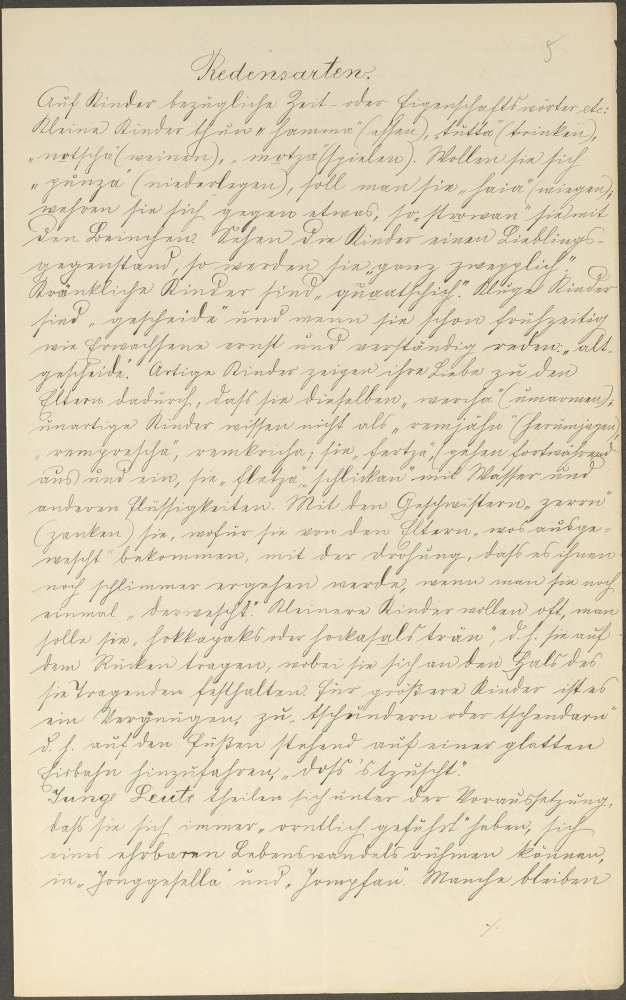 8
Redensarten.
Auf Kinder bezügliche Zeit- oder Eigenschaftswörter etc:
Kleine Kinder thun „hamma" (essen), „tutta" (trinken),
„natscha" (weinen), „motza" (spielen). Wollen sie sich
„punza" (niederlegen), soll man sie „haia" (wiegen);
wehren sie sich gegen etwas, so „strowan" sie mit
den Beinchen. Sehen die Kinder einen Lieblings-
gegenstand, so werden sie „ganz zwepplich".
Kränkliche Kinder sind „quaatschich". Kluge Kinder
sind „gescheide" und wenn sie schon frühzeitig
wie Erwachsene ernst und verständig reden: „alt-
gescheide". Artige Kinder zeigen ihre Liebe zu den
Eltern dadurch, dass sie dieselben „wercha" (umarmen);
unartige Kinder wissen nicht als „remjähn" (herumjagen),
„remprescha", remkricha; sie „fertza" (gehen fortwährend
aus und ein, sie „fletza", „schlickan" mit Wasser und
anderen Flüssigkeiten. Mit den Geschwistern „zerrn"
(zanken) sie, wofür sie von den Eltern „wos ausge-
wescht" bekommen, mit der Drohung, dass es ihnen
noch schlimmer ergehen werde, wenn man sie noch
einmal „derwescht". Kleinere Kinder wollen oft, man
solle sie „hokkapaks oder hockahals trän", d. h. sie auf
dem Rücken tragen, wobei sie sich an den Hals des
sie Tragenden festhalten. Für größere Kinder ist es
ein Vergnügen, zu „tschundern oder tschendarn"
d. h. auf den Füßen stehend auf einer glatten
Eisbahn hinzufahren, „doss's tzuscht".
Junge Leute theilen sich unter der Voraussetzung,
dass sie sich immer „orntlich geführt" haben, sich
eines ehrbaren Lebenswandels rühmen können,
in „Jonggesella" und „Jompfan". Manche bleiben
./.